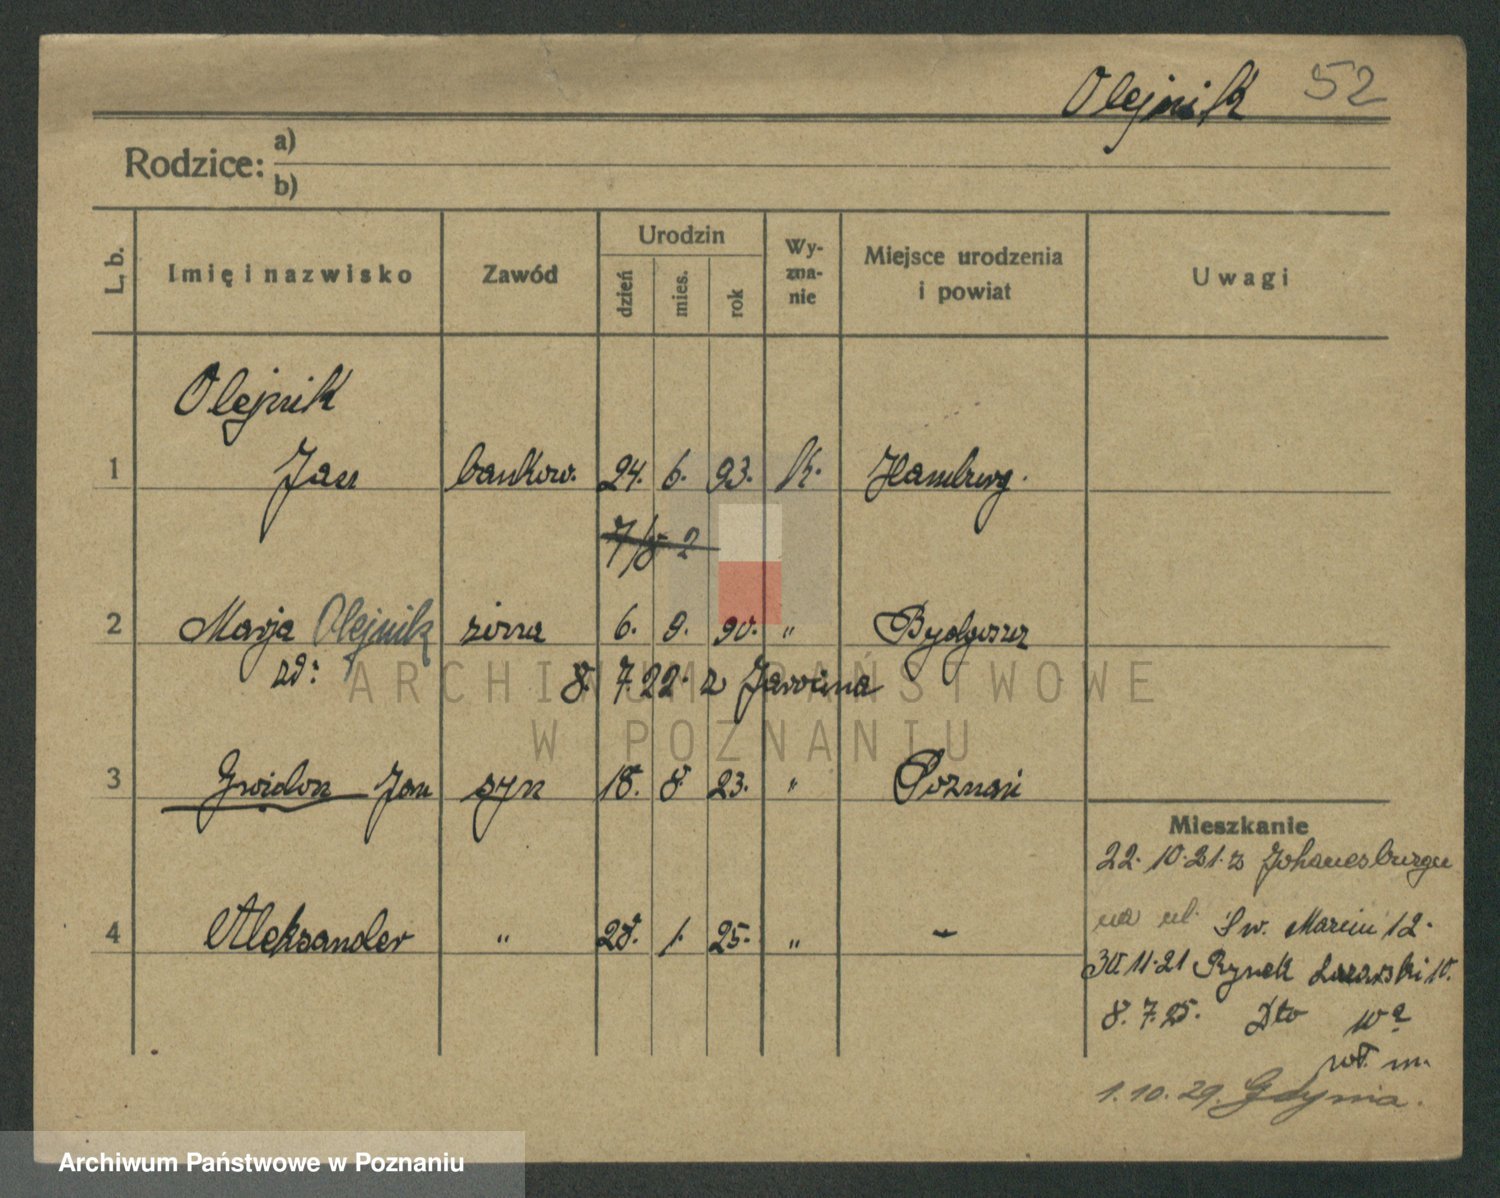 Olejnik 52
Rodzice: a)
b)
L. b. Imię i nazwisko Zawód Urodzin dzień mies. rok Wy-zna-nie Miejsce urodzenia i powiat Uwagi
Olejnik
1 Jan bankow. 24. 6. 93. k. Hamburg.
7/8 2
2 Marja Olejnik żona 6. 9. 90. " Bydgoszcz
zd: 8. 7. 22. z Jarocina
ARCHIWUM PAŃSTWOWE
W POZNANIU
3 Gwidon Jan syn 18. 8. 23. " Poznań
Mieszkanie
22. 10. 21. z Johanesburgu
na ul. Św. Marcin 12.
4 Aleksander " 28. 1. 25. " –
30 11. 21 Rynek Łazarski 10.
8. 7. 25. Dto 10a
m.
1. 10. 29. Gdynia.
Archiwum Państwowe w Poznaniu